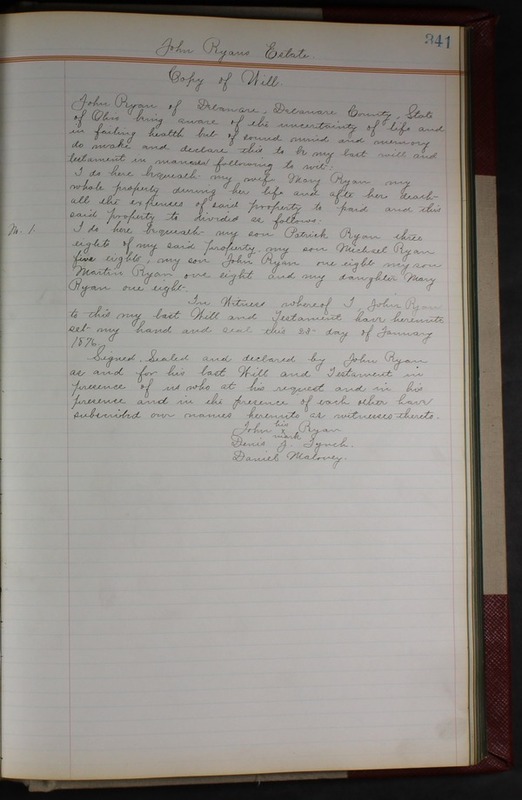 341
John Ryans Estate.
Copy of Will.
John Ryan of Delaware, Delaware County, State
of Ohio being aware of the uncertainty of life and
in failing health but of sound mind and memory
do make and declare this to be my last will and
testament in manner following to wit:
I do here bequeath my wife Mary Ryan my
whole property during her life and after here death
all the expenses of said property to paid and this
said property to divided as follows:
No. 1. I do here bequeath my son Patrick Ryan three
eights of my said property, my son Michael Ryan
eights, my son John Ryan one eight my son
Martin Ryan one eight and my daughter Mary
Ryan one eight.
In Witness whereof I, John Ryan
to this my last Will and Testament have hereunto
set my hand and seal this day of January
1876.
Signed, Sealed and declared by John Ryan
as and for his last Will and Testament in
presence of us who at his request and in his
presence and in the presence of each other have
subscribed our names hereunto as witnesses thereto.
John his x mark Ryan
Denis J. Lynch.
Daniel Maloney.